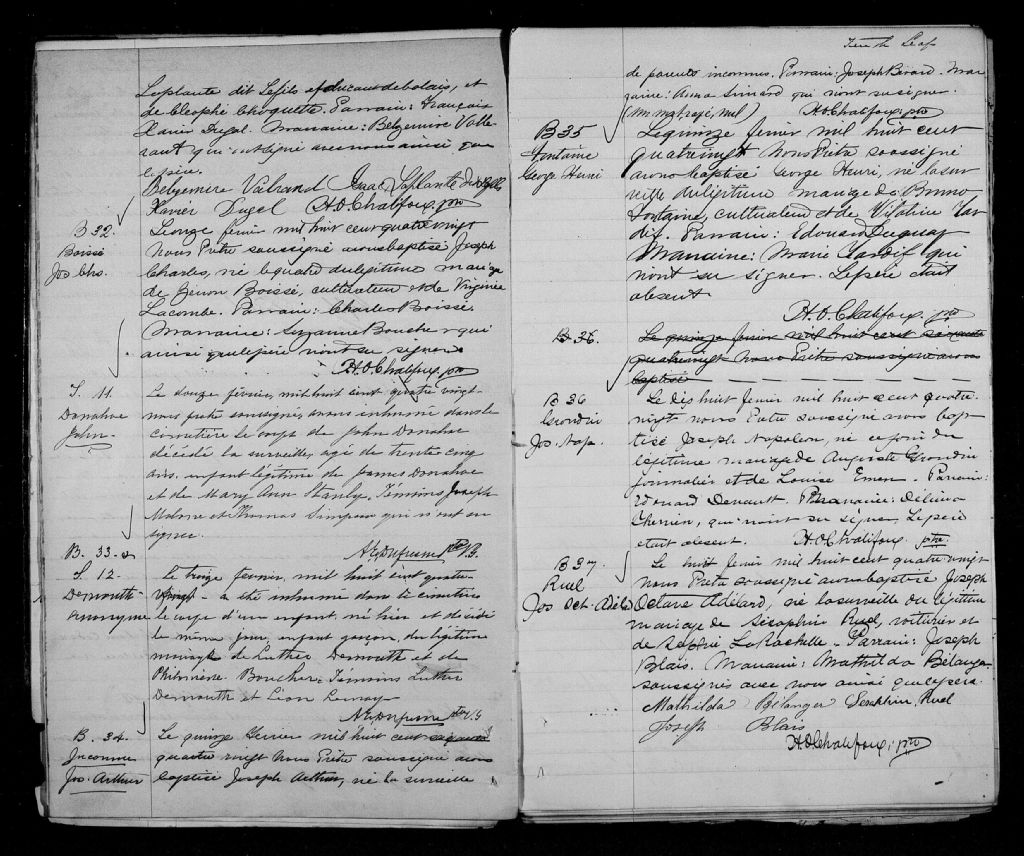 Laplante dit Lafils et de
de Cléophé Choquette. Parrain: François
Xavier Dugal. Marraine: Belzemire Valle
rand qui ont signé avec nous ainsi que
le père.
Belzemire Valrand Isaac Laplante
Xavier Dugal H.O. Chalifoux, ptre
B 32.
Boissé
Jos Chs.
Le onze février mil huit cent quatre vingt
Nous Prêtre soussigné avons baptisé Joseph
Charles, né le quatre du légitime mariage
de Zénon Boissé, cultivateur et de Virginie
Lacombe. Parrain: Charles Boissé.
Marraine: Suzanne Boucher qui
ainsi que le père n'ont su signer
H.O. Chalifoux, ptre
S. 11.
Donahoe
John
Le douze février, mil huit cent quatre vingt
nous prêtre soussigné, avons inhumé dans le
cimetière le corps de John Donahoe
décédé la surveille, agé de trente cinq
ans, enfant légitime de James Donahoe
et de Mary Ann Stanly. Témoins Joseph
et Thomas Simpson qui n'ont su
signer.
A.E. Dufresne ptre V.G.
B. 33.
S. 12.
Demouth
anonyme
Le treize fevrier, mil huit cent quatre
vingt a été inhumé dans le cimetière
le corps d'un enfant, né hier et décédé
le même jour, enfant garçon, du légitime
mariage de Luther Demouth et de
Philomène Boucher. Témoins Luther
Demouth et Léon
A.E. Dufresne ptre V.G
B. 34.
Inconnu
Jos. Arthur
Le quinze Fevrier mil huit cent
quatre vingt Nous Prêtre soussigné avons
baptisé Joseph Arthur, né la surveille
Tenth Leaf
de parents inconnus. Parrain: Joseph Birard. Mar
raine: Anna Simard qui n'ont su signer.
H.O. Chalifoux, ptre
B 35
Fontaine
George Henri
Le quinze fevier mil huit cent
quatre vingt Nous Prêtre soussigné
avons baptisé George Henri, né la sur
veille du légitime mariage de Bruno
Fontaine, cultivateur et de Vitaline Tar
dif. Parrain: Edouard Duquay
Marraine: Marie Tardif qui
n'ont su signer. Le père était
absent
H.O. Chalifoux, ptre
B 36.
Le quinze fevier mil huit cent soixante
quatre vingt Nous Prêtre soussigné avons
baptisé
B 36
Grondin
Jos. Nap.
Le dix huit fevier mil huit cent quatre
vingt nous Prêtre soussigné avons bap
tisé Joseph Napoléon, né ce jour du
légitime mariage de Auguste Grondin
journalier et de Louise Emon. Parrain:
Edouard Denault. Marraine: Délima
Therrien, qui n'ont su signer. Le père
était absent. H.O. Chalifoux, ptre
B 37
Ruel
Jos Oct. Adéld
Le huit fevier mil huit cent quatre vingt
Nous Prêtre soussigné avons baptisé Joseph
Octave Adélard, né la surveille du légitime
mariage de Séraphin Ruel, voiturier et
de Sophie LaRochelle. Parrain: Joseph
Blais. Marraine: Mathilda Bélanger
soussignés avec nous ainsi que le père.
Mathilda Bélanger Séraphin Ruel
Joseph Blais
H.O. Chalifoux, ptre